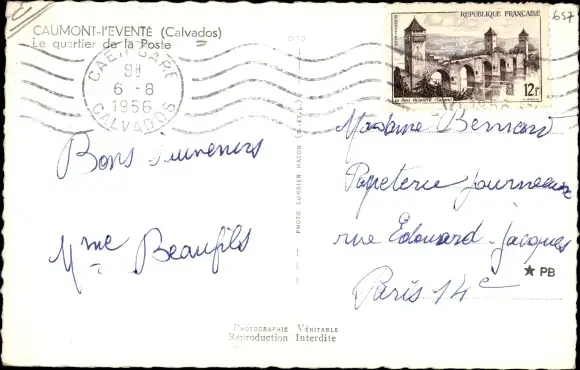 CAUMONT-l'EVENTÉ (Calvados)
Le quartier de la Poste
CAEN GARE
9H
6 - 8
1956
CALVADOS
RÉPUBLIQUE FRANÇAISE
12f
657
Bons Souvenirs
Mme Beaufils
PHOTO COMBIER MACON
Madame Bernard
Papeterie Journeaux
rue Edouard-Jacques
Paris 14e
★ PB
Photographie Véritable
Reproduction Interdite